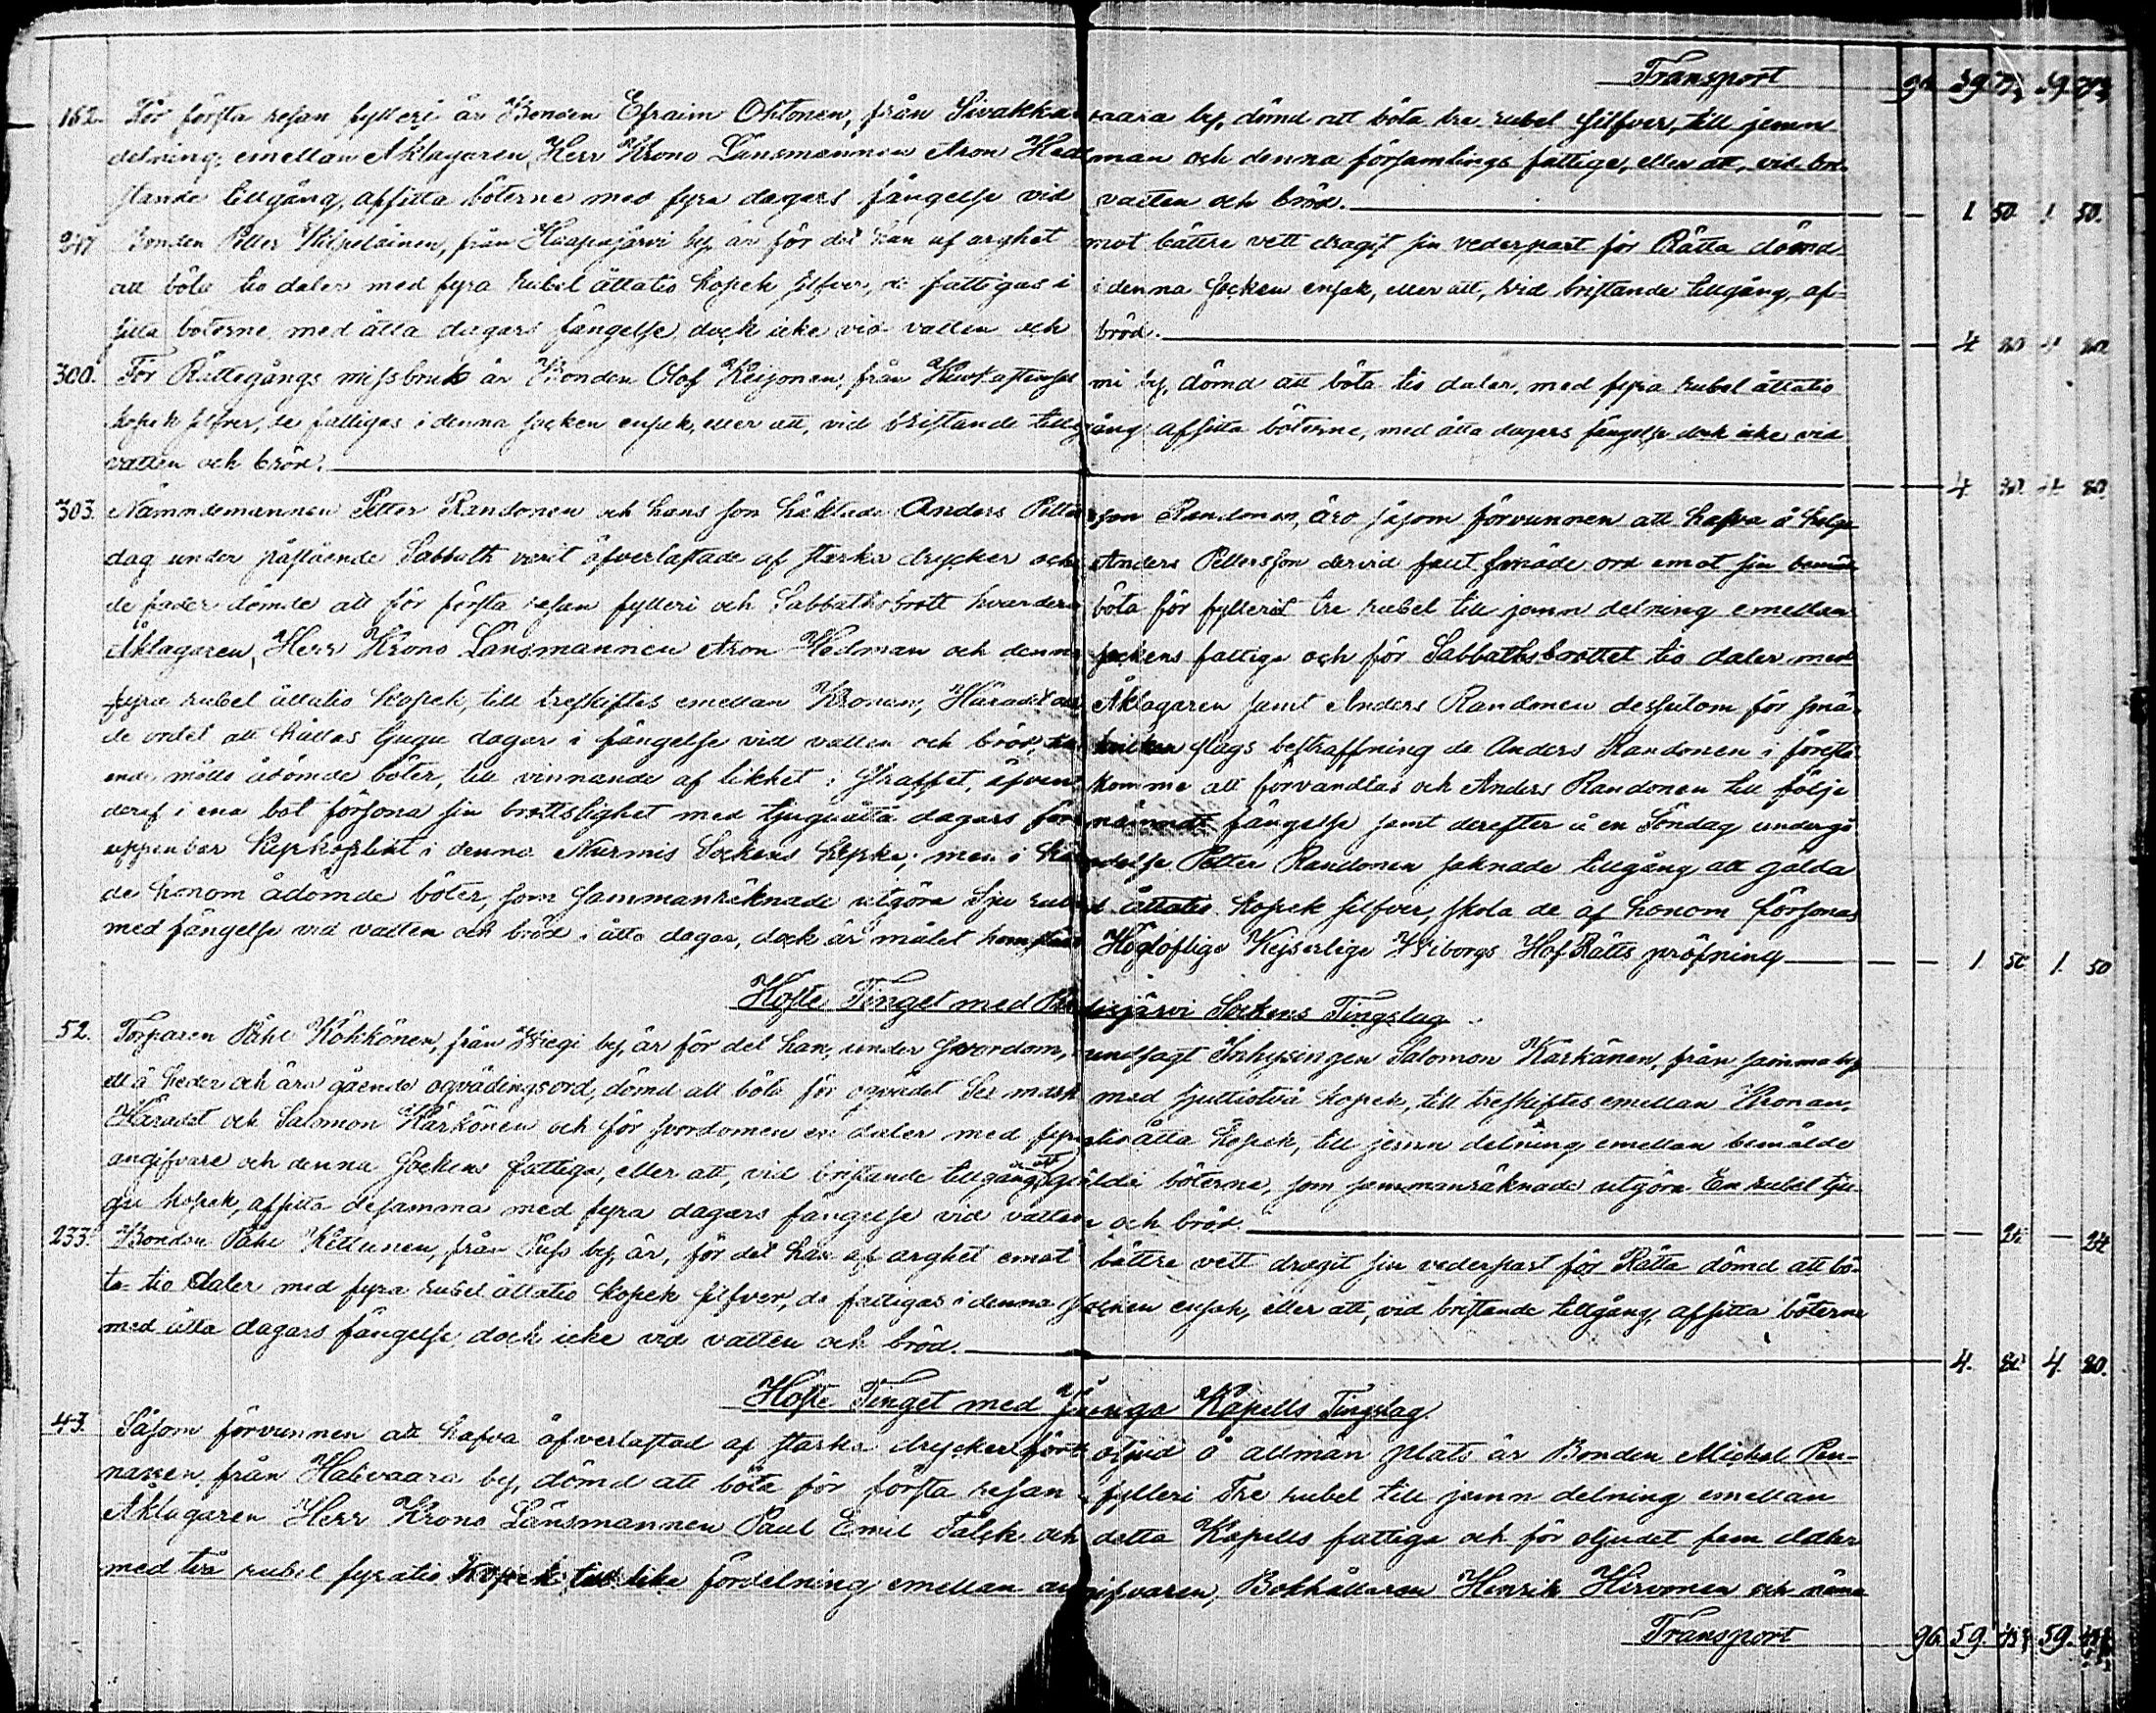 Transport 96. 39.
152. För första resan fylleri är Bonden Efraim Ohtonen, från Sivakkavaara by, dömd att böta tre rubel silfver, till jemn
delning, emellan Åklagaren, Herr Krono Länsmannen Aron Hedman och denna församlings fattige, eller att, vid bri-
stande tillgång, afsitta böterne med fyra dagars fängelse vid vatten och bröd. 1. 50. 1. 50.
247 Bonden Petter Kilpeläinen, från Haapajärvi by, är för det han af arghet mot bättre vett dragit sin vederpart för Rätta dömd
att böta tio daler med fyra rubel åttatio kopek silfver, de fattigas i denna Socken ensak, eller att, vid bristande tillgång, af-
sitta böterne, med åtta dagars fängelse, dock icke vid vatten och bröd. 4 80 4 80
300. För Rättegångs missbruk är Bonden Olof Keijonen, från by, dömd att böta tio daler, med fyra rubel åttatio
kopek silfver, de fattigas i denna socken ensak, eller att, vid bristande tillgång afsitta böterne, med åtta dagars fängelse dock icke vid
vatten och bröd. 4. 80. 4. 80
303. Nämndemannen Petter Randonen och hans son häktade Anders Pettersson Randonen, äro såsom förvunnen att hafva å helge
dag under påstående Sabbath varit öfverlastade af starka drycker och Anders Pettersson dervid fält smäde ord emot sin bemäl-
de fader dömde att för första resan fylleri och Sabbathsbrott hvardera böta för fylleriet tre rubel till jemn delning emellan
Åklagaren, Herr Krono Länsmannen Aron Hedman och denna sockens fattige och för Sabbathsbrottet tio daler med
fyra rubel åttatio kopek, till treskiftes emellan Kronan, Häradet och Åklagaren samt Anders Randonen dessutom för smä-
de ordet att hållas tjugu dagar i fängelse vid vatten och bröd, hvilken slags bestraffning de Anders Randonen i förestå-
ende måtto ådömde böter, till vinnande af likhet i Straffet, komme att förvandlas och Anders Randonen till följe
deraf i ena bot försona sin brottslighet med tjuguåtta dagars förenämndt fängelse samt derefter å en Söndag undergå
uppenbar kyrkoplikt i denna Nurmis Sockens kyrka; men i händelse Petter Randonen saknade tillgång att gälda
de honom ådömde böter, som sammanräknade utgöra Sju rubel åttatio kopek silfver, skola de af honom försonas
med fängelse vid vatten och bröd i åtta dagar, dock är målet hemstäldt Höglöflige Kejserlige Wiborgs HofRätts pröfning 1. 50 1. 50
Höste Tinget med Pielisjärvi Sockens Tingslag.
52. Torparen Påhl Kökkönen, från Wiegi by, är för det han, under svordom, undsagt Inhysingen Salomon Kärkänen, från samma by
ett å heder och ära gående oqvädingsord, dömd att böta för oqvädet Sex mark med sjuttiotvå kopek, till treskiftes emellan Kronan,
Häradet och Salomon Kärkönen och för svordomen en daler med fyratioåtta kopek, till jemn delning emellan bemälde
angifvare och denna Sockens fattiga, eller att, vid bristande tillgång att gälda böterne, som sammanräknade utgöra En rubel tju-
gu kopek, afsitta desamma med fyra dagars fängelse vid vatten och bröd. 24 24
233. Bonden Påhl Kettunen, från by, är, för det han af arghet emot bättre vett dragit sin vederpart för Rätta dömd att bö-
ta tio daler med fyra rubel åttatio kopek silfver, de fattigas i denna Socken ensak, eller att, vid bristande tillgång, afsitta böterne
med åtta dagars fängelse, dock icke vid vatten och bröd. 4. 80. 4. 80.
Höste Tinget med Juuga Kapells Tingslag.
43. Såsom förvunnen att hafva öfverlastad af starka drycker fört oljud å allmän plats är Bonden Michel Pen-
nanen från Halivaara by, dömd att böta för första resan fylleri Tre rubel till jemn delning emellan
Åklagaren Herr Krono Länsmannen Paul Emil Falck och detta Kapells fattiga och för oljudet fem daler
med två rubel fyratio kopek till lika fördelning emellan angifvaren, Bokhållaren Henrik Hirvonen och
Transport 96. 59. 59.